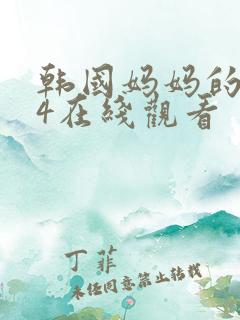 韩国妈妈的
4在线观看
丁菲
未经同意禁止转载